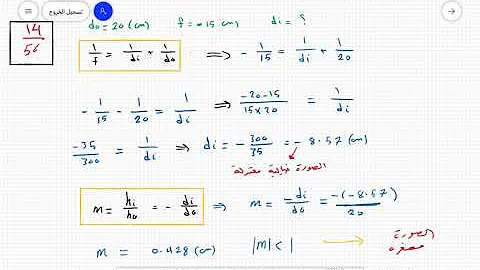 تسجيل الخروج
14/56
do = 20 (cm) f = -15 cm di = ?
1/f = 1/di + 1/do ⟹ -1/15 = 1/di + 1/20
-1/15 - 1/20 = 1/di ⟹ -20-15/15×20 = 1/di
-35/300 = 1/di ⟹ di = -300/35 = -8.57 (cm)
الصورة خيالية معتدلة
m = hi/ho = -di/do ⟹ m = -di/do = -(-8.57)/20
m = 0.428 (cm) |m| < 1 → الصورة مصغرة